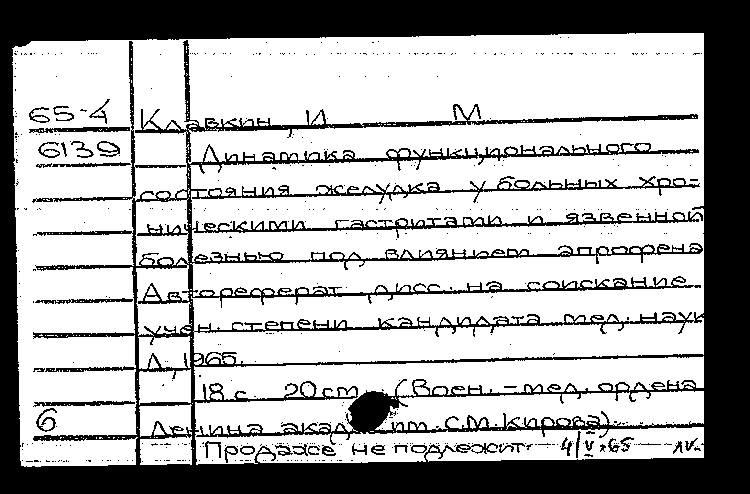 65-4 Клавкин, И М
6139 Динамика функционального
состояния желудка у больных хро-
ническими гастритами и язвенной
болезнью под влиянием апрофена
Автореферат дисс. на соискание
учен. степени кандидата мед. наук
Л, 1965.
18 с 20 cm (Воен.-мед. ордена
6 Ленина акад им. С.М. Кирова)
Продаже не подлежит 4/V-65